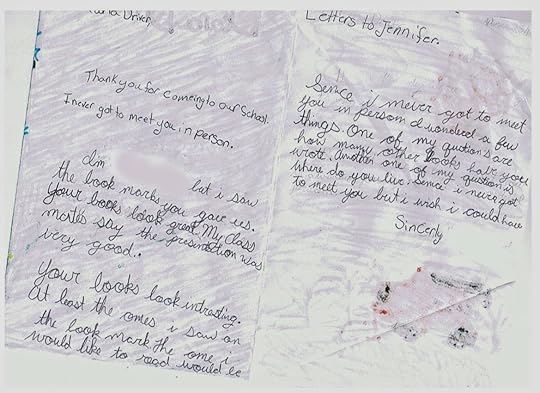 Driver,
Thank you for comeing to our School.
I never got to meet you in person.
dim
but i saw
the book marks you gave us.
Your books look great. My Class
mates say the presintation was
very good..
Your books look intresting.
At least the omes i saw on
the book mark the one i
would like to read would be
Letters to Jennifer.
Sence i never got to meet
you in person I wondeed a few
things. One of my qutions are
how many other books have you
wrote. Another one of my qutions is
where do you live. Sence i never got
to meet you but i wish i could have
Sincerly